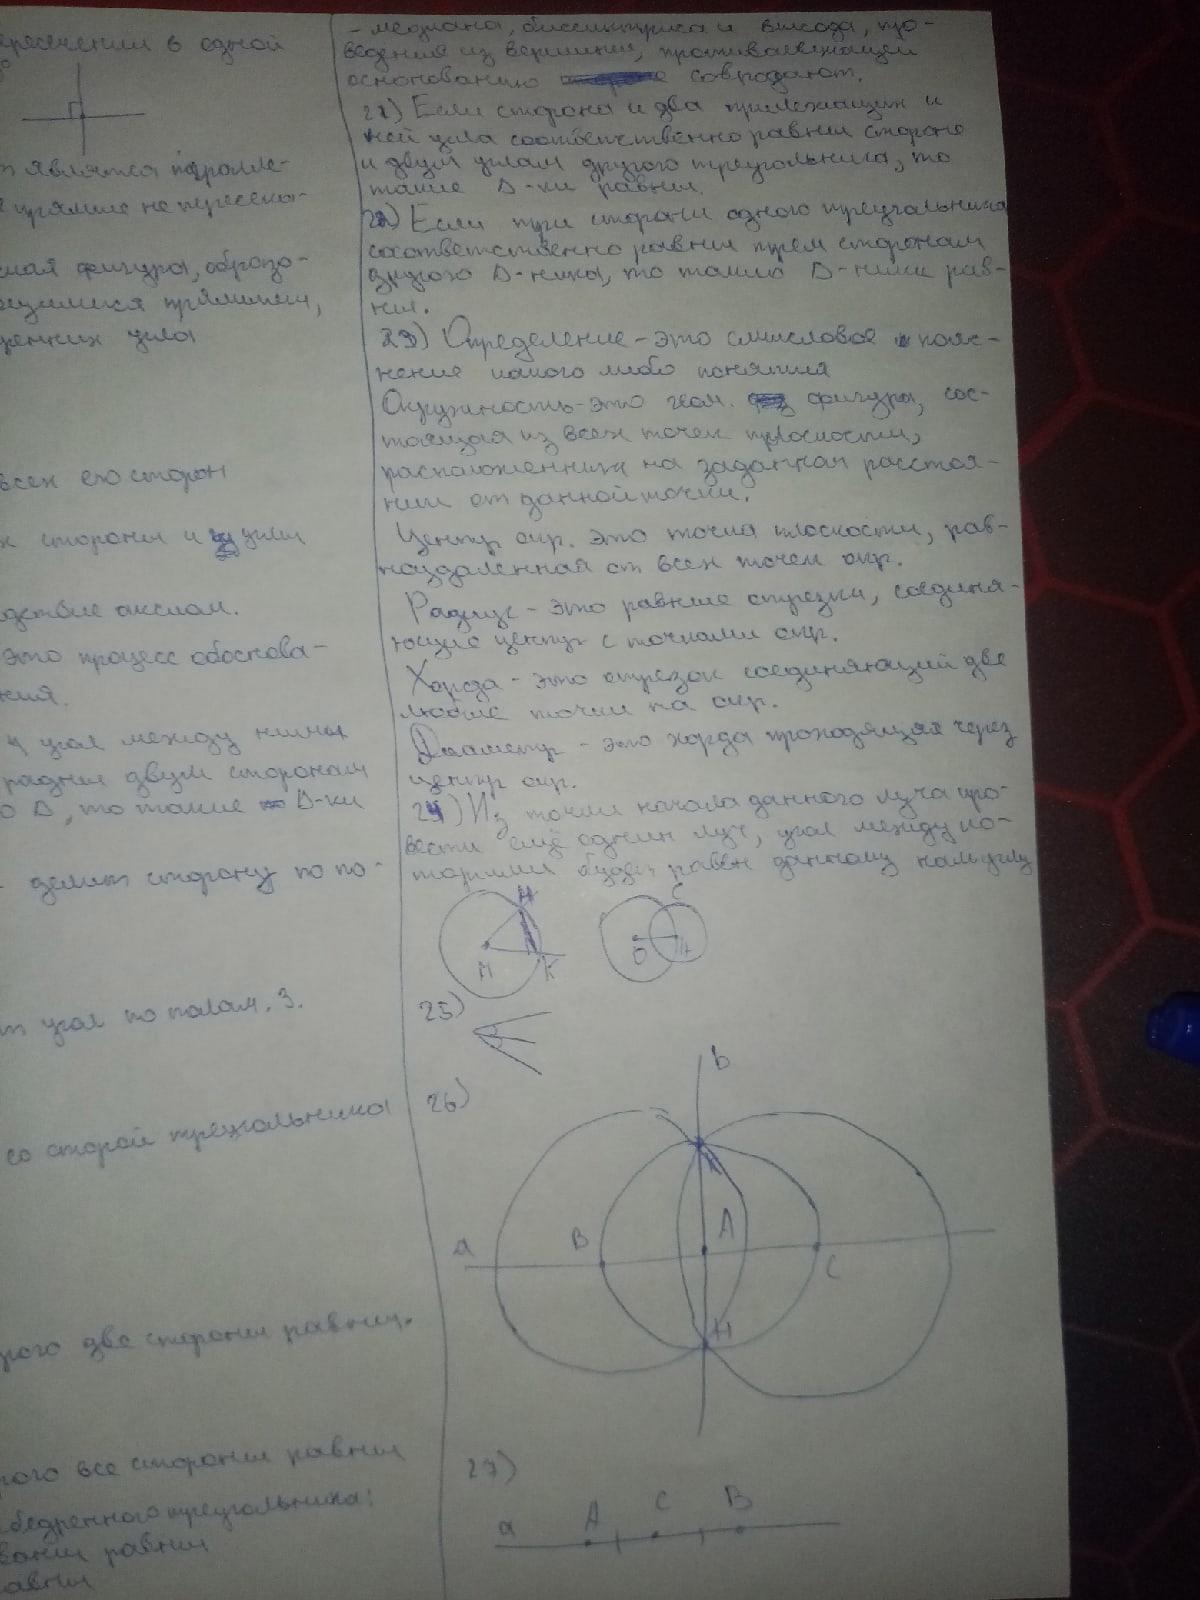 пересечении в одной
является паралле-
прямые не пересека-
ская фигура, образо-
ающимися прямыми,
ренних угла
всех его сторон
стороны и углы
дствие аксиом.
это процесс обоснова-
ния.
и угол между ними
равны двум сторонам
о Δ, то такие Δ-ки
делит сторону по по-
т угол по полам. 3.
со сторой треугольника
рого две стороны равны.
рого все стороны равны
бедренного треугольника:
вании равны
равны
- медиана, биссектриса и высода, про-
ведения из вершины, противалежащей
основованию совподают.
21) Если сторона и два прилежащих и
ней угла соответственно равны стороне
и двум углам другого треугольника, то
такие Δ-ки равны.
22) Если три стороны одного треугальника
соответственно равны трем сторонам
другого Δ-ника, то такио Δ-ники рав-
ны.
23) Определение - это смысловое пояс-
нение какого либо понятия
Окружность - это геом. фигура, сос-
тоящая из всех точек плоскости,
расположенных на заданном расстоя-
нии от данной точки.
Центр окр. это точка плоскости, рав-
ноудаленная от всех точек окр.
Радиус - это равные отрезки, соединя-
ющие центр с точками окр.
Хорда - это отрезок соединяющий две
любые точки на окр.
Диаметр - это хорда проходящая через
центр окр.
24) Из точки начала данного луча про-
вести ещё однин луч, угол между ко-
торыми будет равен данному нам углу
Н С
М К О А
25)
26)
b
К
a B A C
Н
27)
a A C B